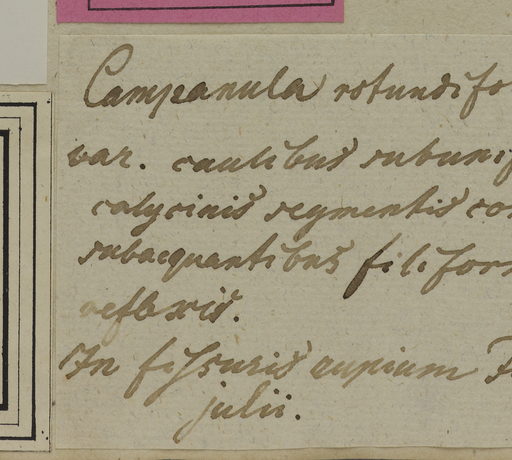 Campanula rotundifo
var. caulibus subunif
calycinis segmentis co
subaequantibus filifor
reflexis.
In fissuris rupium F
julii.